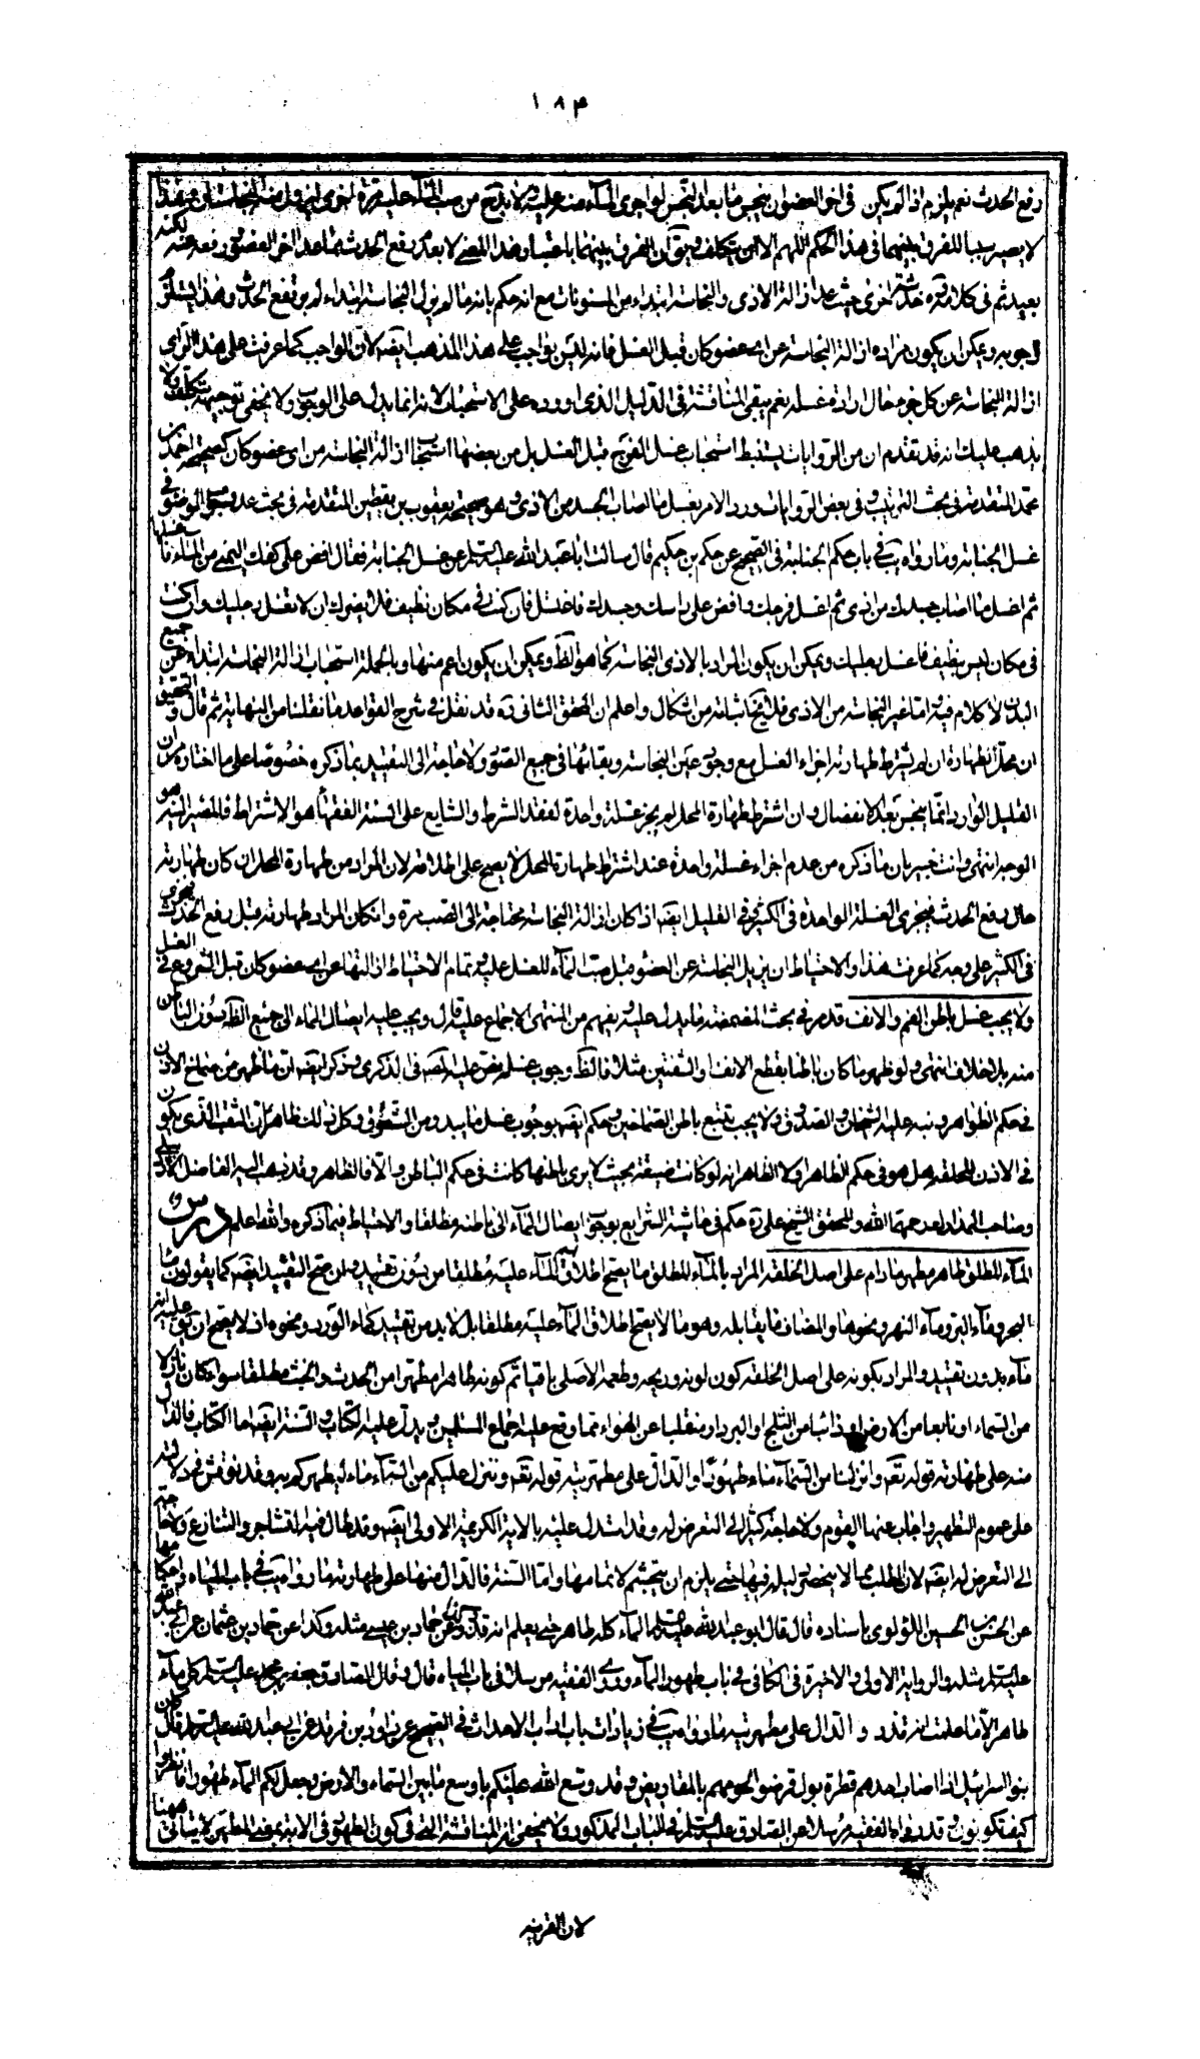 ١٨٤
رفع الحدث نعم يلزم اذا لم يكن في اخر العضو ان ينجس ما بعد النجس لو اجرى الماء منه عليه فلا بد من صب الماء عليه مرة اخرى
لا يصير سببا للفرق بينهما في هذا الحكم اللهم الا ان يتكلف ويق ان الفرق بينهما باعتبار هذا المعنى لا بعد رفع الحدث عما عدا اخر العضو ورفعه عنه لكنه
بعيد ثم في كلامه قده خدشة اخرى حيث عد ازالة الاذى والنجاسة ابتداء من المسنونات مع انه حكم بانه ما لم يزل النجاسة ابتداء لم يرتفع الحدث وهذا يستلزم
وجوبه ويمكن ان يكون مراده ازالة النجاسة عن اي عضو كان قبل الغسل فانه ليس بواجب على هذا المذهب ايضه لان الواجب كما عرفت على هذا الراي
ازالة النجاسة عن كل جزء حال ارادة غسله نعم يبقى المناقشة في الدليل الذي اورده على الاستحباب لانه انما يدل على الوجوب ولا يخفى توجيهه بتكلف ولا
يذهب عليك انه قد تقدم ان من الروايات يستنبط استحباب غسل الفرج قبل الغسل بل من بعضها استحباب ازالة النجاسة من اي عضو كان كصحيحة احمد بن
محمد المتقدمة في بحث الترتيب وفي بعض الروايات ورد الامر بغسل ما اصاب الجسد من الاذى وهو صحيحة يعقوب بن يقطين المتقدمة في بحث عدم الوضوء في
غسل الجنابة وما رواه يب في باب حكم الجنابة في الصحيح عن حكم بن حكيم قال سالت ابا عبد الله عليه السلم عن غسل الجنابة فقال افض على كفك اليمنى من الماء فاغسلها
ثم اغسل ما اصاب جسدك من اذى ثم اغسل فرجك وافض على راسك وجسدك فاغتسل فان كنت في مكان نظيف فلا يضرك ان لا تغسل رجليك وان كنت
في مكان ليس بنظيف فاغسل رجليك ويمكن ان يكون المراد بالاذى النجاسة كما هو الظ ويمكن ان يكون اعم منها وبالجملة استحباب ازالة النجاسة ابتداء عن جميع
البدن لا كلام فيه اما غير النجاسة من الاذى فلا يخ اثباته من اشكال واعلم ان المحقق الثاني ره قد نقل في شرح القواعد ما نقلنا من النهاية ثم قال والتحقيق
ان محل الطهارة ان لم يشترط طهارته اجزاء الغسل مع وجود عين النجاسة وبقائها في جميع الصور ولا حاجة الى التقييد بما ذكره خصوصا على ما اختاره من ان
القليل الوارد انما ينجس بعد الانفصال وان اشترط طهارة المحل لم يجز غسلة واحدة لفقد الشرط والشايع على السنة الفقهاء هو الاشتراط فالمصير اليه هو
الوجه انتهى وانت خبير بان ما ذكره من عدم اجزاء غسلة واحدة عند اشتراط طهارة المحل لا يصح على اطلاقه لان المراد من طهارة المحل ان كان طهارته
حال رفع الحدث فيجزي الغسلة الواحدة في الكثير وفي القليل ايضه اذا كان ازالة النجاسة محتاجة الى الصب مرة وان كان المراد طهارته قبل رفع الحدث فيجزي
في الكثير على وجه كما عرفت هذا والاحتياط ان يزيل النجاسة عن العضو قبل صب الماء للغسل عليه وتمام الاحتياط ازالتها عن اي عضو كان قبل الشروع في الغسل
ولا يجب غسل باطن الفم والانف قد مر في بحث المضمضة ما يدل عليه ويفهم من المنتهى الاجماع عليه قال ويجب عليه ايصال الماء الى جميع الظاهر دون الباطن
منه بلا خلاف انتهى ولو ظهر ما كان باطنا بقطع الانف او الشفتين مثلا فالظ وجوب غسله نص عليه المصه في الذكرى وذكر ايضه ان ما ظهر من صماخ الاذن
في حكم الظواهر ونبه عليه الشيخان والصدوق ولا يجب تتبع باطن الصماخين وحكم ايضه بوجوب غسل ما يبدو من الشقوق وكذلك ظاهر ان الثقب الذي يكون
في الاذن للحلقة هل هو في حكم الظاهر او لا الظاهر انه لو كانت ضيقة بحيث لا يرى باطنها كانت في حكم الباطن والا فالظاهر وقد ذهب اليه الفاضل الاردبيلي
وصاحب المدارك رحمهما الله والمحقق الشيخ علي ره حكم في حاشية الشرايع بوجوب ايصال الماء الى باطنه مطلقا والاحتياط فيما ذكره والله اعلم درس
الماء المطلق طاهر مطهر ما دام على اصل الخلقة المراد بالماء المطلق ما يصح اطلاق الماء عليه مطلقا من دون تقييد وان صح التقييد ايضه كما يقولون ماء
البحر وماء البئر وماء النهر ونحوها والمضاف ما يقابله وهو ما لا يصح اطلاق الماء عليه مطلقا بل لا بد من تقييد كماء الورد ونحوه اذ لا يصح ان يق عليه انه
ماء بدون تقييد والمراد بكونه على اصل الخلقة كون لونه وريحه وطعمه الاصلي باقيا ثم كونه طاهرا مطهرا من الحدث والخبث مطلقا سواء كان نازلا
من السماء او نابعا من الارض او ذائبا من الثلج او البرد او منقلبا عن الهواء مما وقع عليه اجماع المسلمين ويدل عليه الكتاب والسنة ايضه اما الكتاب فالدال
منه على طهارته قوله تعه وانزلنا من السماء ماء طهورا والدال على مطهريته قوله تعه وينزل عليكم من السماء ماء ليطهركم به وقد نوقش في دلالته
على عموم التطهير واجاب عنها القوم ولا حاجة كثيرا الى التعرض له وقد استدل عليه بالاية الكريمة الاولى ايضه وقد طال فيه التشاجر والتنازع ولا حاجة
الى التعرض له ايضه لان المطلب مما لا ينحصر دليله فيها حتى يلزم ان يتجشم لاتمامها واما السنة فالدال منها على طهارته ما رواه يب في باب المياه واحكامها
عن الحسن بن الحسين اللؤلوي باسناده قال قال ابو عبد الله عليه السلم الماء كله طاهر حتى يعلم انه قذر وعن حماد بن عيسى مثله وكذا عن حماد بن عثمان عن ابي عبد الله
عليه السلم مثله والرواية الاولى والاخيرة في الكافي في باب طهور الماء وروى الفقيه مرسلا في باب المياه قال وقال الصادق جعفر بن محمد عليه السلم كل ماء
طاهر الا ما علمت انه قذر والدال على مطهريته ما رواه يب في زيادات باب اداب الاحداث في الصحيح عن داود بن فرقد عن ابي عبد الله عليه السلم قال كان
بنو اسرائيل اذا اصاب احدهم قطرة بول قرضوا لحومهم بالمقاريض وقد وسع الله عليكم باوسع ما بين السماء والارض وجعل لكم الماء طهورا فانظروا
كيف تكونون وقد رواه الفقيه مرسلا عن الصادق عليه السلم في الباب المذكور ولا يخفى ان المناقشة التي في كون الطهور في الاية بمعنى المطهر لا يتاتى ههنا
لان القرينه